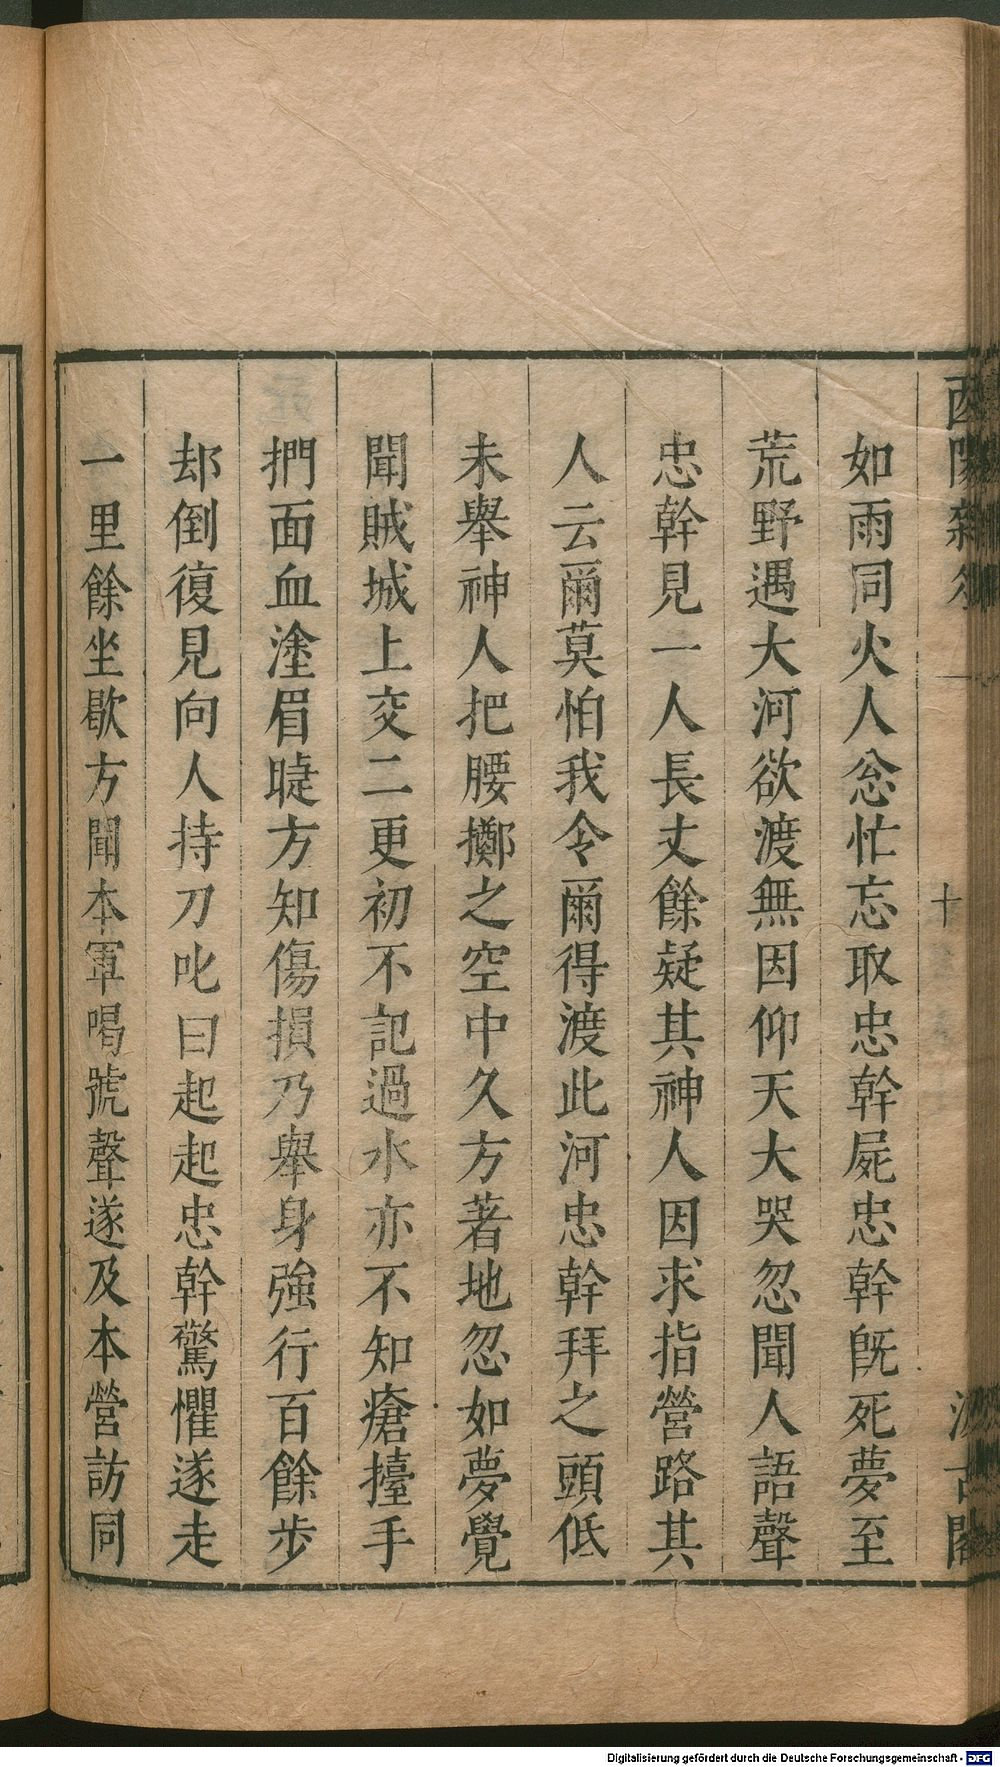 酉陽雜俎 十 汲古閣
如雨同火人忩忙忘取忠幹屍忠幹旣死夢至
荒野遇大河欲渡無因仰天大哭忽聞人語聲
忠幹見一人長丈餘疑其神人因求指營路其
人云爾莫怕我令爾得渡此河忠幹拜之頭低
未舉神人把腰擲之空中久方著地忽如夢覺
聞賊城上交二更初不記過水亦不知瘡擡手
捫面血塗眉睫方知傷損乃舉身強行百餘步
却倒復見向人持刀叱曰起起忠幹驚懼遂走
一里餘坐歇方聞本軍喝號聲遂及本營訪同
Digitalisierung gefördert durch die Deutsche Forschungsgemeinschaft - DFG